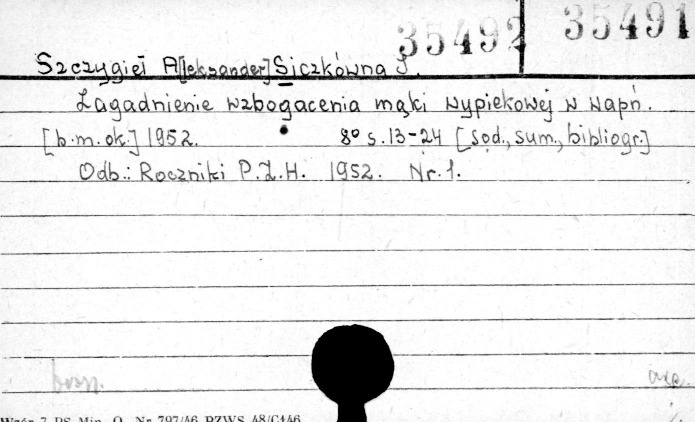 35492 35491
Szczygieł A[leksander] Siczkówna J.
Zagadnienie wzbogacenia mąki wypiekowej w wapń.
[b.m.ok.] 1952. 8° s. 13-24 [sod., sum., bibliogr.]
Odb.: Roczniki P.Z.H. 1952. Nr. 1.
brosz.
Wzór 7 PS. Min. O. Nr 797/46 PZWS. 48/C146